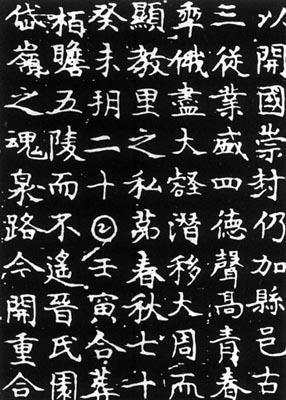 以開國崇封仍加縣邑古
三從業盛四德聲高青春
俄盡大壑潛移大周而
顯教里之私第春秋七十
癸未朔二十𡆠壬寅合葬
栢瞻五陵而不遙晉氏園
岱嶺之魂泉路今開重合